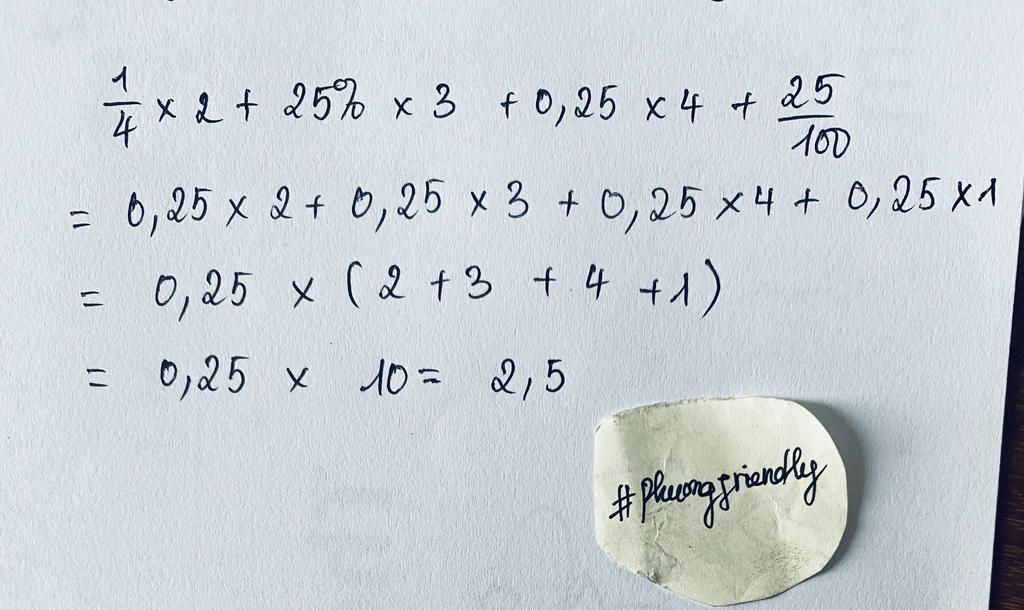 1/4 × 2 + 25% × 3 + 0,25 × 4 + 25/100
= 0,25 × 2 + 0,25 × 3 + 0,25 × 4 + 0,25 × 1
= 0,25 × (2 + 3 + 4 + 1)
= 0,25 × 10 = 2,5
#phuongfriendly